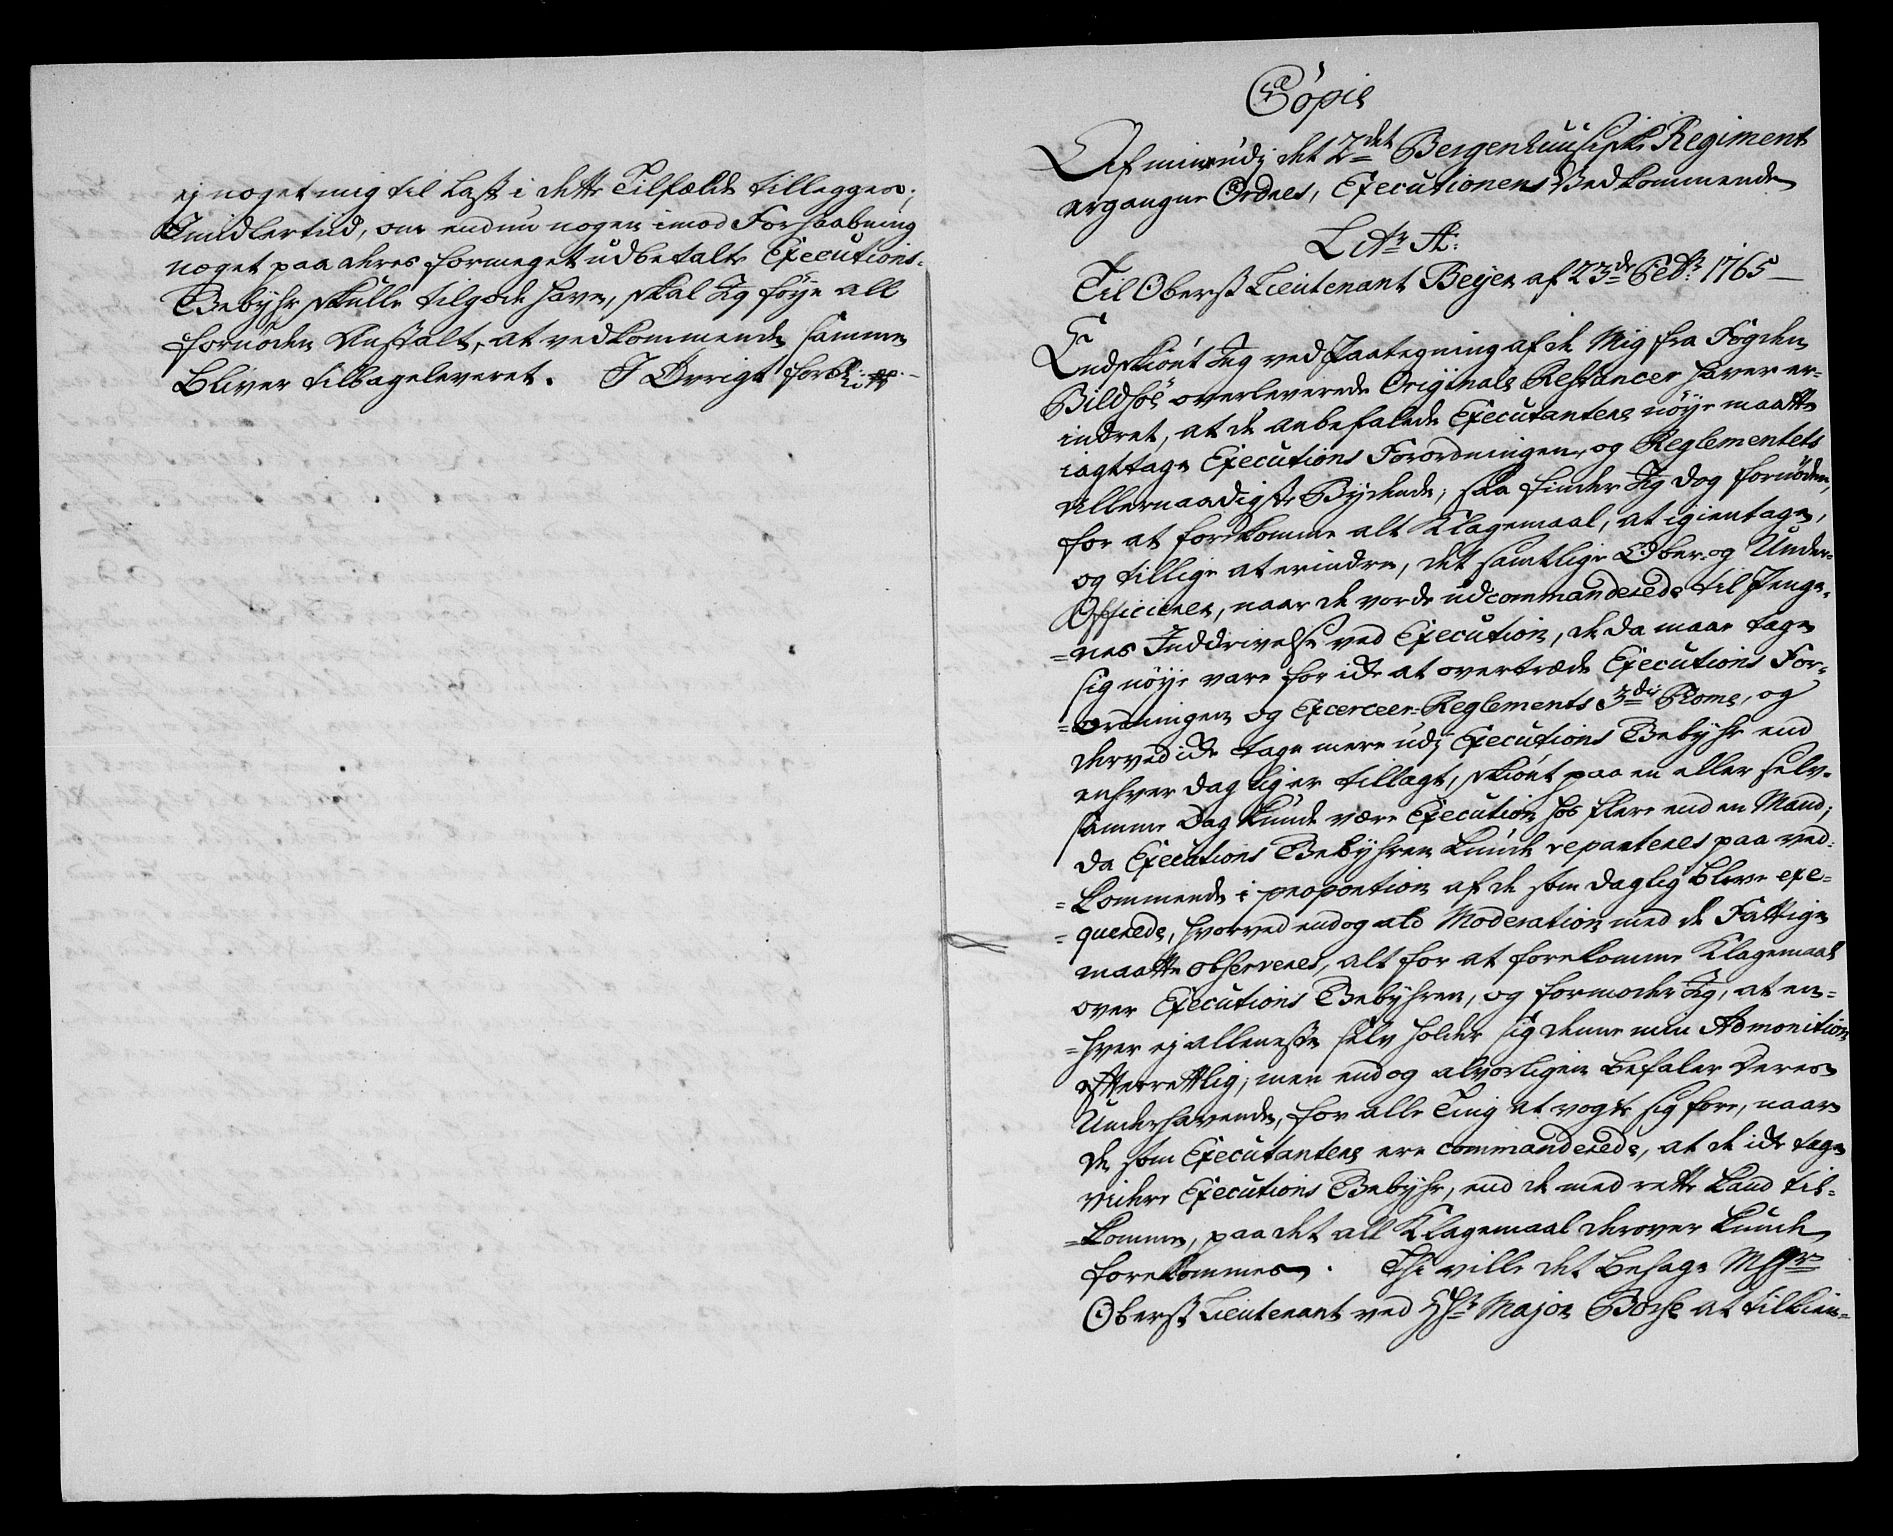 ej noget mig til Last i dette Tilfælde tillegges;
Imidlertid, om endnu nogen imod Forhaabning
noget paa deres formeget udbetalte Executions-
Gebyhr skulle tilgode have, skal Jeg föye all
fornöden Anstalt, at vedkommende samme
bliver tilbageleveret. I Övrigt forbl:
Copie
Af min udj det 2det Bergenhuusiske Regiment
ergangne Ordres, Executionens Vedkommende
Litr A:
Til Oberst Lieutenant Beyer af 23de Febr: 1765
Endskiönt Jeg ved Paategning af de Mig fra Fogden
Bildsöe overleverede Originale Restancer haver er-
indret, at de anbefalede Executanteres nöye maatte
iagttage Executions Forordningen, og Reglementets
allernaadigste Bydende; saa finder Jeg dog fornöden,
for at forekomme alt Klagemaal, at igientage,
og tillige at erindre, det samtlige Ober- og Under-
Officierer, naar de vorde udcommanderede til Penge-
=nes Inddrivelse ved Execution, de da maae tage
sig nöye vare for ide at overtræde Executions For-
=ordningen og Excerceer-Reglements 3die Tome, og
derved icke tage mere udj Executions Gebyhr end
enhver daglig er tillagt, skiönt paa en eller selv-
samme Dag kunde være Execution hos flere end en Mand;
da Executions Gebyhren kunde reparteres paa ved-
=kommende i proportion af de som daglig bleve exe-
=querede, hvorved endog ald Moderation med de Fattige
maatte observeres, alt for at forekomme Klagemaal
over Executions Gebyhren, og formoder Jeg, at en-
=hver ej alleneste selv holder sig denne min Admonition
efterrettlig, men endog alvorligen befaler deres
Underhavende, for alle Ting at vogte sig fore, naar
de som Executanters ere commanderede, at de icke tage
videre Executions Gebyhr, end de med rette kand til-
=komme, paa det all Klagemaal derover kunde
forekommes. Thi ville det behage Mhr
Oberst Lieutenant ved Hr Major Boche at tilkien-